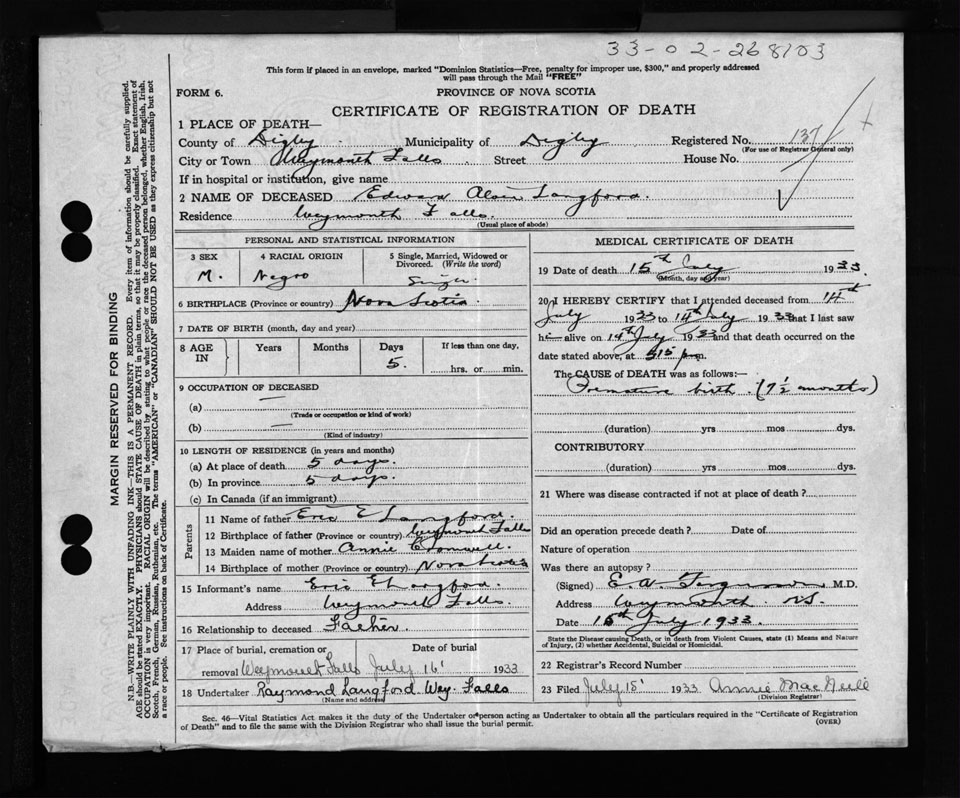 33-02-268103
This form if placed in an envelope, marked "Dominion Statistics—Free, penalty for improper use, $300," and properly addressed
will pass through the Mail "FREE"
FORM 6.
PROVINCE OF NOVA SCOTIA
CERTIFICATE OF REGISTRATION OF DEATH
1 PLACE OF DEATH—
County of Digby Municipality of Digby Registered No. 137
(For use of Registrar General only)
City or Town Weymouth Falls Street House No.
If in hospital or institution, give name
2 NAME OF DECEASED Edward Langford.
Residence Weymouth Falls.
(Usual place of abode)
PERSONAL AND STATISTICAL INFORMATION
3 SEX 4 RACIAL ORIGIN 5 Single, Married, Widowed or
Divorced. (Write the word)
M. Negro Single
6 BIRTHPLACE (Province or country) Nova Scotia
7 DATE OF BIRTH (month, day and year)
8 AGE IN Years Months Days If less than one day,
5. hrs. or min.
9 OCCUPATION OF DECEASED
(a) —
(Trade or occupation or kind of work)
(b) —
(Kind of industry)
10 LENGTH OF RESIDENCE (in years and months)
(a) At place of death 5 days.
(b) In province 5 days.
(c) In Canada (if an immigrant)
Parents
11 Name of father Eric E Langford.
12 Birthplace of father (Province or country) Weymouth Falls
13 Maiden name of mother Annie Cromwell.
14 Birthplace of mother (Province or country) Nova Scotia
15 Informant's name Eric E Langford.
Address Weymouth Falls.
16 Relationship to deceased Father.
17 Place of burial, cremation or Date of burial
removal Weymouth Falls July 16' 1933
18 Undertaker Raymond Langford Wey. Falls
(Name and address)
MEDICAL CERTIFICATE OF DEATH
19 Date of death 15th July 1933.
(Month, day and year)
20 I HEREBY CERTIFY that I attended deceased from 14th
July 1933 to 14th July 1933 that I last saw
h alive on 14th July 1933 and that death occurred on the
date stated above, at 515 p.m.
The CAUSE of DEATH was as follows:—
Premature birth. (7½ months)
(duration) yrs mos dys.
CONTRIBUTORY
(duration) yrs mos dys.
21 Where was disease contracted if not at place of death?
Did an operation precede death? Date of
Nature of operation
Was there an autopsy?
(Signed) E. A. Ferguson, M.D.
Address Weymouth. N.S.
Date 15th July 1933.
State the Disease causing Death, or in death from Violent Causes, state (1) Means and Nature
of Injury, (2) whether Accidental, Suicidal or Homicidal.
22 Registrar's Record Number
23 Filed July 15' 1933 Annie MacNeill
(Division Registrar)
Sec. 46—Vital Statistics Act makes it the duty of the Undertaker or person acting as Undertaker to obtain all the particulars required in the "Certificate of Registration
of Death" and to file the same with the Division Registrar who shall issue the burial permit.
(OVER)
MARGIN RESERVED FOR BINDING
N.B.—WRITE PLAINLY WITH UNFADING INK—THIS IS A PERMANENT RECORD. Every item of information should be carefully supplied.
AGE should be stated EXACTLY. PHYSICIANS should STATE CAUSE OF DEATH in plain terms, so that it may be properly classified. Exact statement of
OCCUPATION is very important. RACIAL ORIGIN will be described by stating to what people or race the deceased person belonged, whether English, Irish,
Scotch, French, German, Russian, Ruthenian, etc. The terms "AMERICAN" or "CANADIAN" SHOULD NOT BE USED as they express citizenship but not
a race or people. See instructions on back of Certificate.